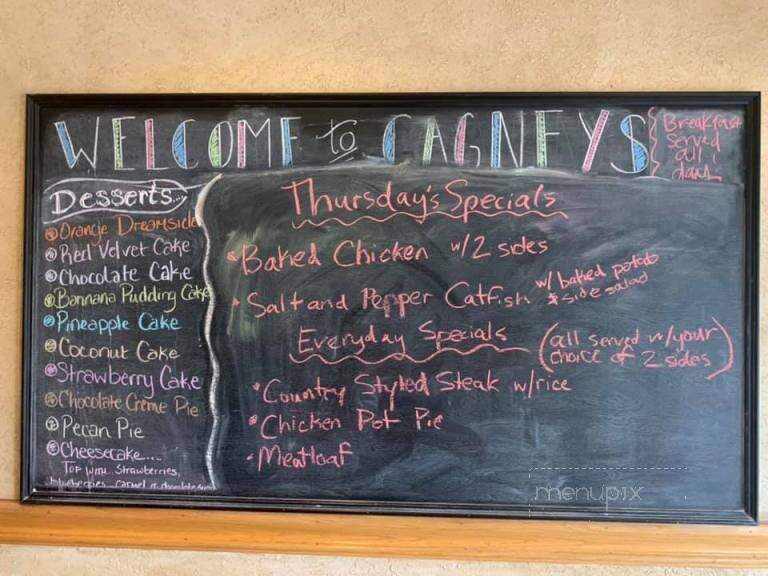 WELCOME to CAGNEYS
Breakfast
Served
all
day
Desserts...
Orange Dreamsicle
Red Velvet Cake
Chocolate Cake
Bannana Pudding Cake
Pineapple Cake
Coconut Cake
Strawberry Cake
Chocolate Creme Pie
Pecan Pie
Cheesecake....
Top with Strawberries,
blueberries
Thursday's Specials
Baked Chicken w/2 sides
Salt and Pepper Catfish w/ baked potato
& side salad
Everyday Specials (all served w/your
choice of 2 sides)
Country Styled Steak w/rice
Chicken Pot Pie
Meatloaf
menupix